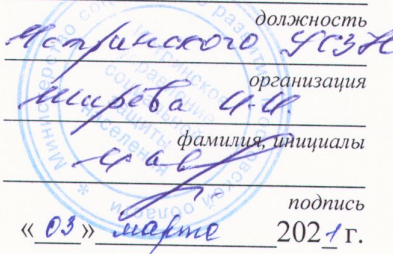 должность
Истринского УСЗН
организация
Ширева И.И.
фамилия, инициалы
подпись
«03» марта 2021 г.